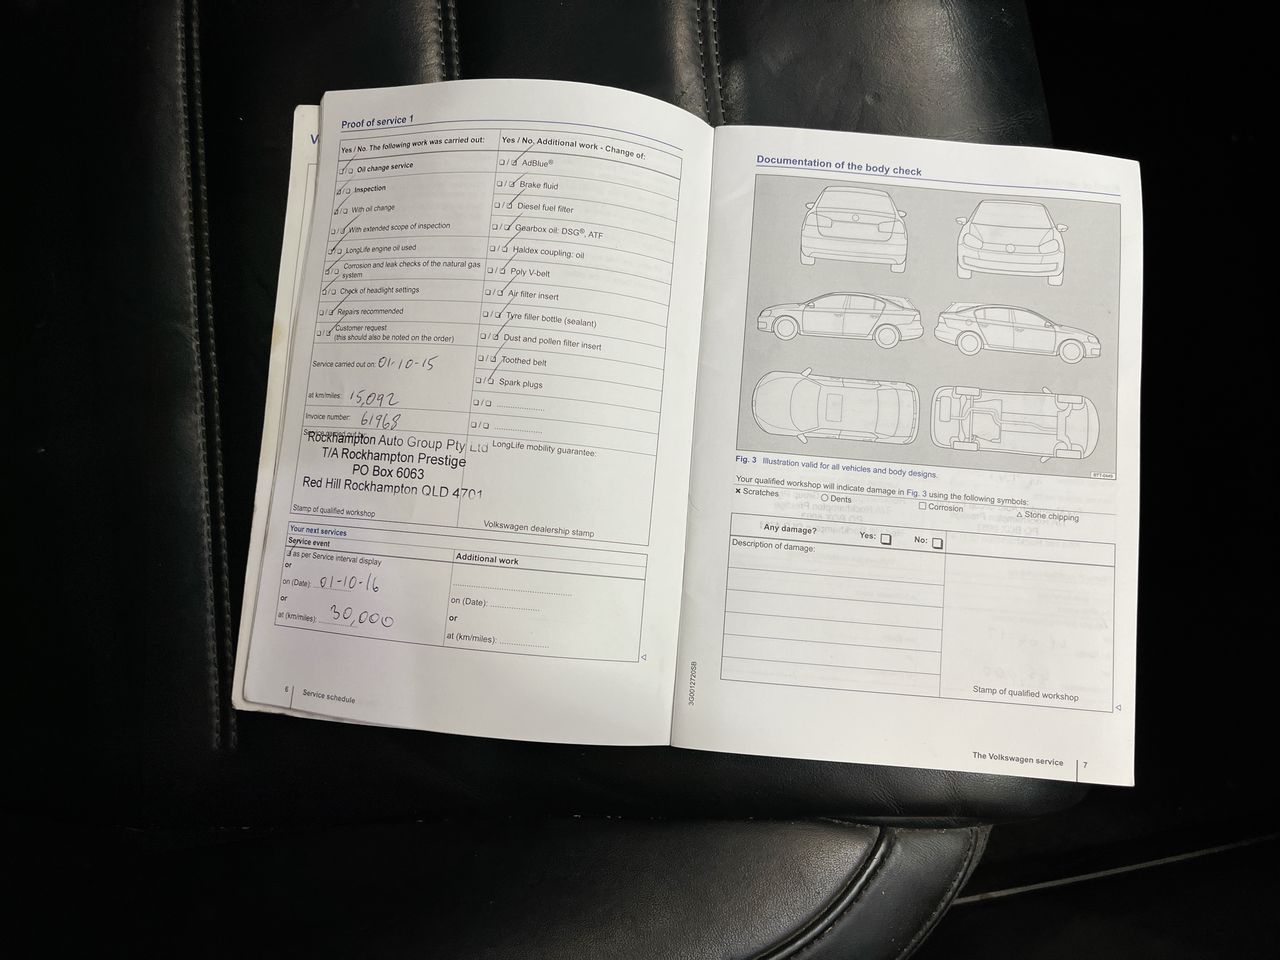 V
Proof of service 1
Yes / No. The following work was carried out:
❑/❑ Oil change service
❑/❑ Inspection
❑/❑ With oil change
❑/❑ With extended scope of inspection
❑/❑ LongLife engine oil used
❑/❑ Corrosion and leak checks of the natural gas
system
❑/❑ Check of headlight settings
❑/❑ Repairs recommended
❑/❑ Customer request
(this should also be noted on the order)
Service carried out on: 01-10-15
at km/miles: 15,092
Invoice number: 61968
Service carried out by:
Rockhampton Auto Group Pty Ltd
T/A Rockhampton Prestige
PO Box 6063
Red Hill Rockhampton QLD 4701
Stamp of qualified workshop
Yes / No. Additional work - Change of:
❑/❑ AdBlue®
❑/❑ Brake fluid
❑/❑ Diesel fuel filter
❑/❑ Gearbox oil: DSG®, ATF
❑/❑ Haldex coupling: oil
❑/❑ Poly V-belt
❑/❑ Air filter insert
❑/❑ Tyre filler bottle (sealant)
❑/❑ Dust and pollen filter insert
❑/❑ Toothed belt
❑/❑ Spark plugs
❑/❑ ....................
❑/❑ ....................
LongLife mobility guarantee:
Volkswagen dealership stamp
Your next services
Service event
❑ as per Service interval display
or
on (Date): 01-10-16
or
at (km/miles): 30,000
Additional work
........................................
on (Date): ................
or
at (km/miles): ................
6 Service schedule
Documentation of the body check
BTT-0445
Fig. 3 Illustration valid for all vehicles and body designs.
Your qualified workshop will indicate damage in Fig. 3 using the following symbols:
× Scratches ○ Dents □ Corrosion △ Stone chipping
Any damage? Yes: ❑ No: ❑
Description of damage:
Stamp of qualified workshop
3G0012720SB
The Volkswagen service 7